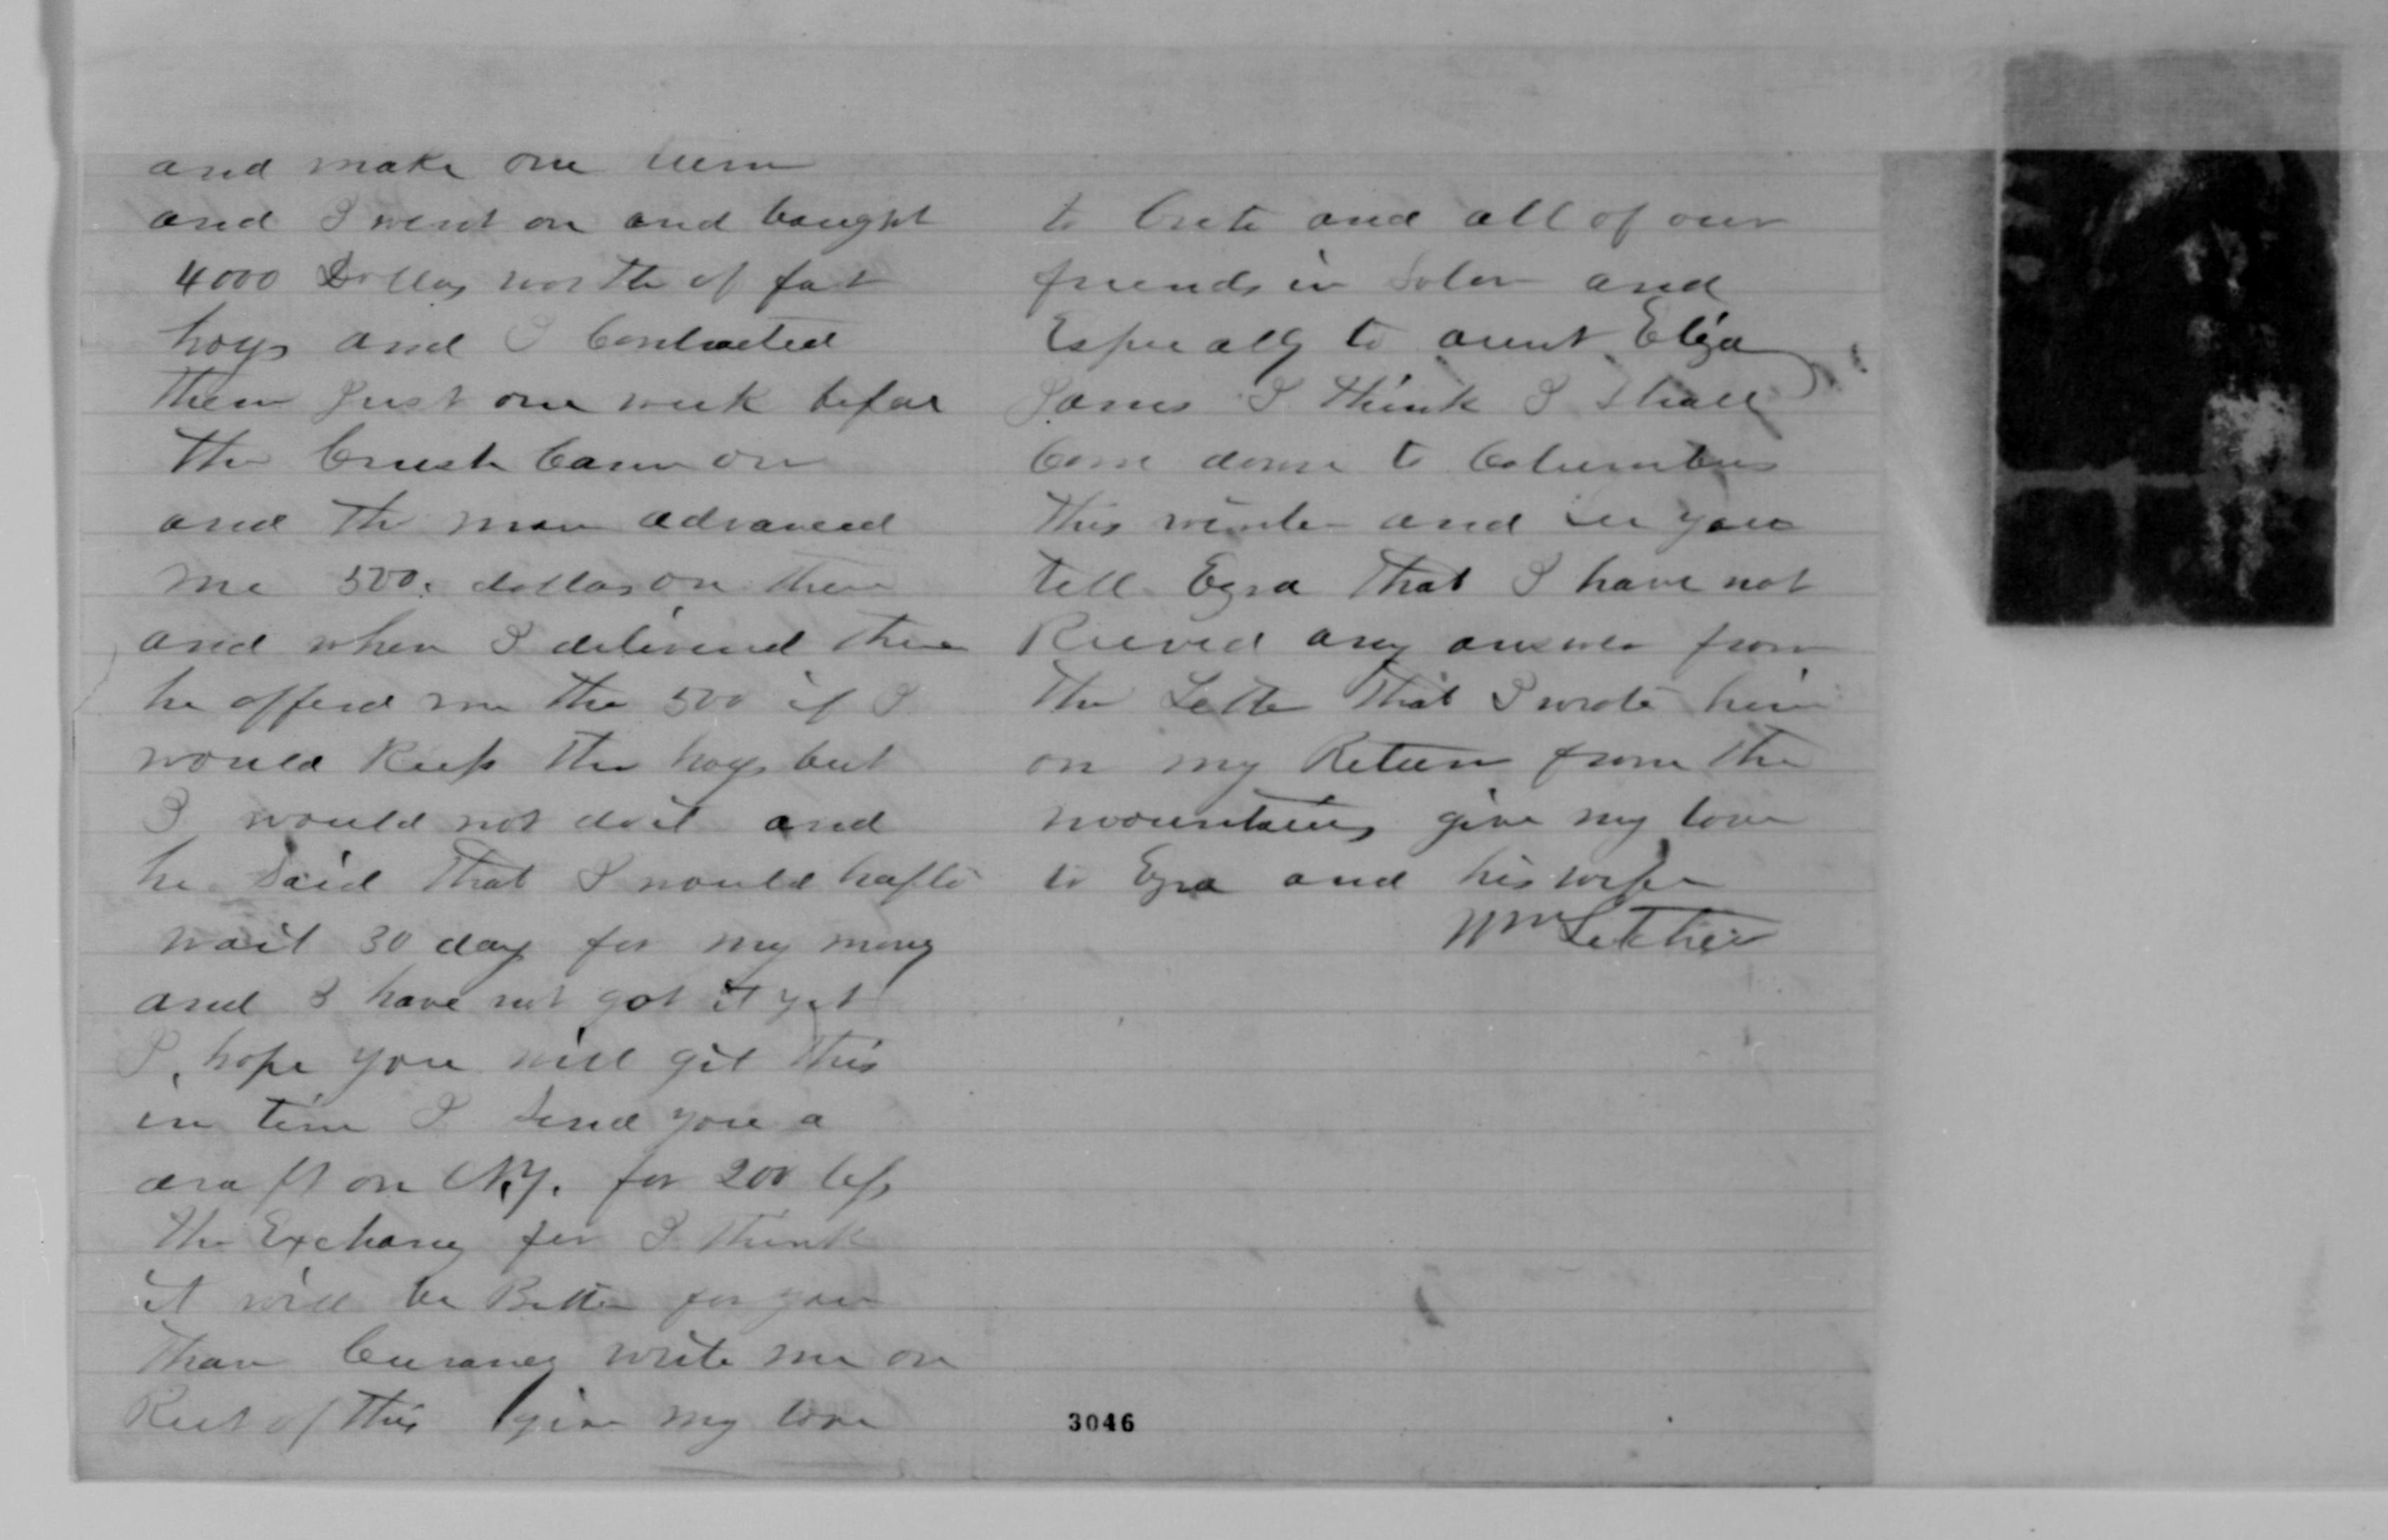 and make one turn
and I went on and baught
4000 Dollas worth of fat
hogs and I Contracted
them Just one week befor
the Crush Came on
and the man advanced
me 500. dollas on them
and when I deliverd them
heofferd me the 500 if I
would Keep the hogs but
I would not do it and
he Said that I would hafto
wait 30 day for my mony
and I have not got it yet
I hope you will git this
in time I Send you a
draft on N.Y. for 200 less
the Exchang for I think
it will be Better for you
than Curancy write me on
Rect of this give my love
to Crete and all of our
friends in Solon and
Especally to aunt Eliza
James I think I Shall
Come down to Columbus
this winter and See you
tell Ezra that I have not
Recived any answer from
the Letter that I wrote him
on my Return from the
mountains give my love
to Ezra and his wife
Wm Letcher
3046